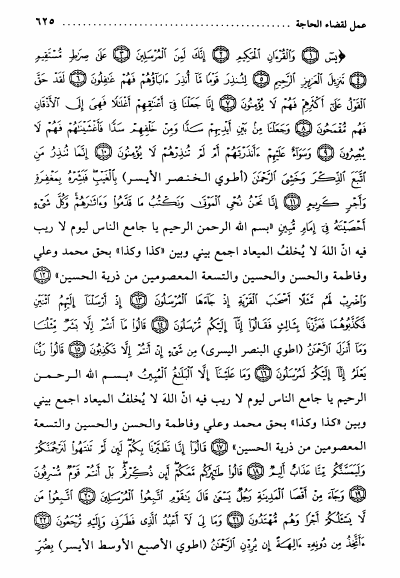 عمل لقضاء الحاجة ........................ ٦٢٥
﴿يسٓ ﴿١﴾ وَالْقُرْءَانِ الْحَكِيمِ ﴿٢﴾ إِنَّكَ لَمِنَ الْمُرْسَلِينَ ﴿٣﴾ عَلَى صِرَاطٍ مُّسْتَقِيمٍ
﴿٤﴾ تَنزِيلَ الْعَزِيزِ الرَّحِيمِ ﴿٥﴾ لِتُنذِرَ قَوْمًا مَّا أُنذِرَ ءَابَاؤُهُمْ فَهُمْ غَافِلُونَ ﴿٦﴾ لَقَدْ حَقَّ
الْقَوْلُ عَلَى أَكْثَرِهِمْ فَهُمْ لَا يُؤْمِنُونَ ﴿٧﴾ إِنَّا جَعَلْنَا فِي أَعْنَاقِهِمْ أَغْلَالًا فَهِيَ إِلَى الْأَذْقَانِ
فَهُم مُّقْمَحُونَ ﴿٨﴾ وَجَعَلْنَا مِن بَيْنِ أَيْدِيهِمْ سَدًّا وَمِنْ خَلْفِهِمْ سَدًّا فَأَغْشَيْنَاهُمْ فَهُمْ لَا
يُبْصِرُونَ ﴿٩﴾ وَسَوَاءٌ عَلَيْهِمْ ءَأَنذَرْتَهُمْ أَمْ لَمْ تُنذِرْهُمْ لَا يُؤْمِنُونَ ﴿١٠﴾ إِنَّمَا تُنذِرُ مَنِ
اتَّبَعَ الذِّكْرَ وَخَشِيَ الرَّحْمَنَ (أطوي الخنصر الأيسر) بِالْغَيْبِ فَبَشِّرْهُ بِمَغْفِرَةٍ
وَأَجْرٍ كَرِيمٍ ﴿١١﴾ إِنَّا نَحْنُ نُحْيِ الْمَوْتَى وَنَكْتُبُ مَا قَدَّمُوا وَءَاثَارَهُمْ وَكُلَّ شَيْءٍ
أَحْصَيْنَاهُ فِي إِمَامٍ مُّبِينٍ «بسم الله الرحمن الرحيم يا جامع الناس ليوم لا ريب
فيه انّ اللهَ لا يُخلفُ الميعاد اجمع بيني وبين «كذا وكذا» بحق محمد وعلي
وفاطمة والحسن والحسين والتسعة المعصومين من ذرية الحسين» ﴿١٢﴾
وَاضْرِبْ لَهُم مَّثَلًا أَصْحَابَ الْقَرْيَةِ إِذْ جَاءَهَا الْمُرْسَلُونَ ﴿١٣﴾ إِذْ أَرْسَلْنَا إِلَيْهِمُ اثْنَيْنِ
فَكَذَّبُوهُمَا فَعَزَّزْنَا بِثَالِثٍ فَقَالُوا إِنَّا إِلَيْكُم مُّرْسَلُونَ ﴿١٤﴾ قَالُوا مَا أَنتُمْ إِلَّا بَشَرٌ مِّثْلُنَا
وَمَا أَنزَلَ الرَّحْمَنُ (اطوي البنصر اليسرى) مِن شَيْءٍ إِنْ أَنتُمْ إِلَّا تَكْذِبُونَ ﴿١٥﴾ قَالُوا رَبُّنَا
يَعْلَمُ إِنَّا إِلَيْكُمْ لَمُرْسَلُونَ ﴿١٦﴾ وَمَا عَلَيْنَا إِلَّا الْبَلَاغُ الْمُبِينُ «بـسـم الله الرحـمـن
الرحيم يا جامع الناس ليوم لا ريب فيه انّ اللهَ لا يُخلفُ الميعاد اجمع بيني
وبين «كذا وكذا» بحق محمد وعلي وفاطمة والحسن والحسين والتسعة
المعصومين من ذرية الحسين» ﴿١٧﴾ قَالُوا إِنَّا تَطَيَّرْنَا بِكُمْ لَئِن لَّمْ تَنتَهُوا لَنَرْجُمَنَّكُمْ
وَلَيَمَسَّنَّكُم مِّنَّا عَذَابٌ أَلِيمٌ ﴿١٨﴾ قَالُوا طَائِرُكُم مَّعَكُمْ أَئِن ذُكِّرْتُم بَلْ أَنتُمْ قَوْمٌ مُّسْرِفُونَ
﴿١٩﴾ وَجَاءَ مِنْ أَقْصَا الْمَدِينَةِ رَجُلٌ يَسْعَى قَالَ يَاقَوْمِ اتَّبِعُوا الْمُرْسَلِينَ ﴿٢٠﴾ اتَّبِعُوا مَن
لَّا يَسْأَلُكُمْ أَجْرًا وَهُم مُّهْتَدُونَ ﴿٢١﴾ وَمَا لِيَ لَا أَعْبُدُ الَّذِي فَطَرَنِي وَإِلَيْهِ تُرْجَعُونَ ﴿٢٢﴾
ءَأَتَّخِذُ مِن دُونِهِ ءَالِهَةً إِن يُرِدْنِ الرَّحْمَنُ (اطوي الأصبع الأوسط الأيسر) بِضُرٍّ